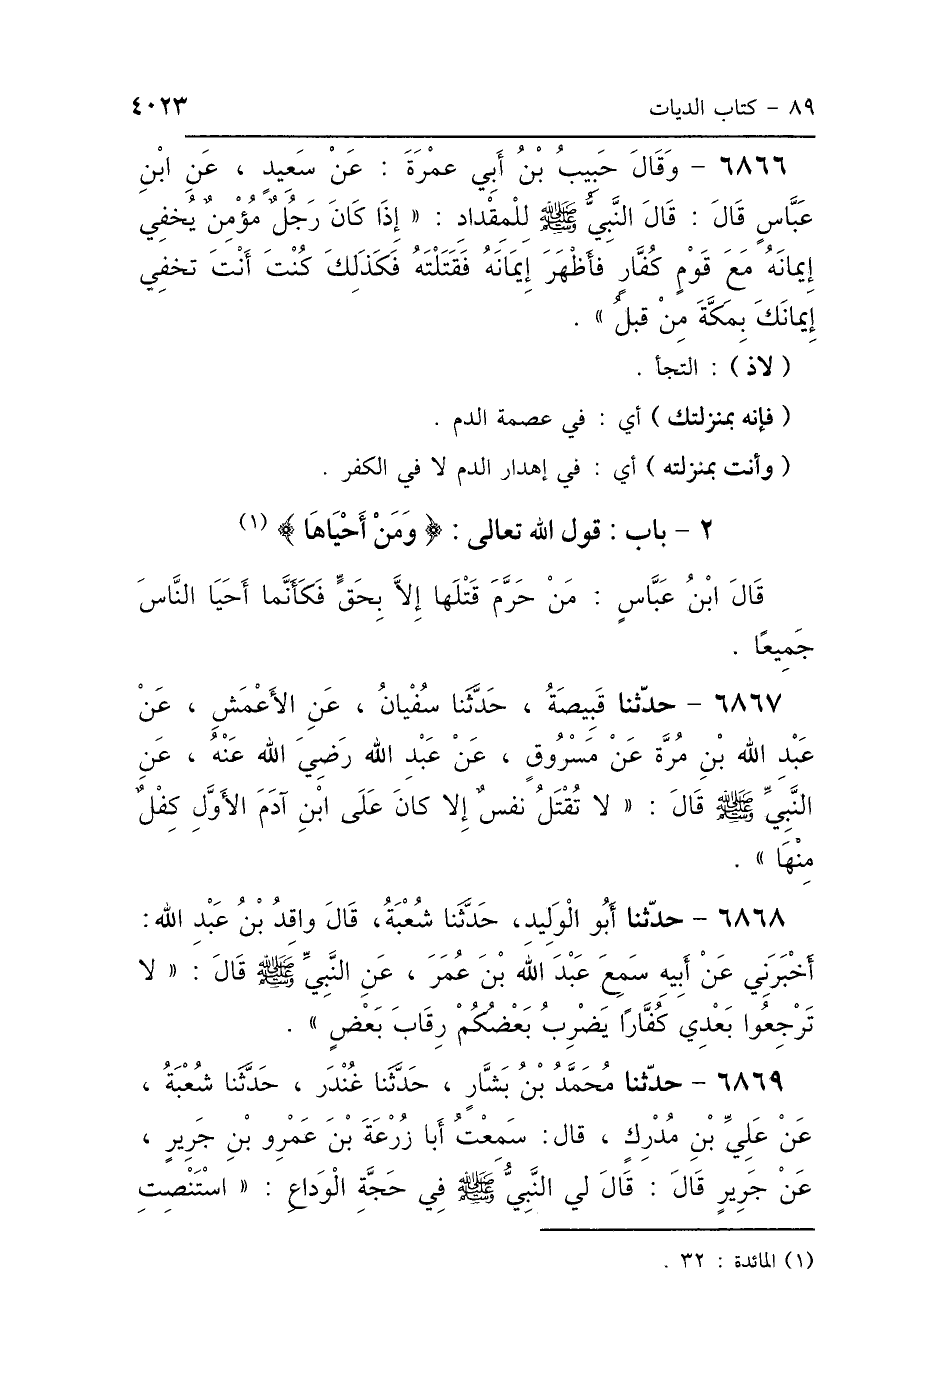 ٨٩ – كتاب الديات ٤٠٢٣
٦٨٦٦ – وَقَالَ حَبِيبُ بْنُ أَبي عمْرَةَ : عَنْ سَعِيدٍ ، عَنِ ابْنِ
عَبَّاسٍ قَالَ : قَالَ النَّبِيُّ ﷺ لِلْمِقْدادِ : « إِذَا كَانَ رَجُلٌ مُؤْمِنٌ يُخفِي
إِيمانَهُ مَعَ قَوْمٍ كُفَّارٍ فأَظْهَرَ إِيمَانَهُ فَقَتَلْتَهُ فَكَذَلِكَ كُنْتَ أَنْتَ تخفِي
إِيمانَكَ بِمَكَّةَ مِنْ قبلُ » .
( لاذ ) : التجأ .
( فإنه بمنزلتك ) أي : في عصمة الدم .
( وأنت بمنزلته ) أي : في إهدار الدم لا في الكفر .
٢ – باب : قول الله تعالى : ﴿ وَمَنْ أَحْيَاهَا ﴾ (١)
قَالَ ابْنُ عَبَّاسٍ : مَنْ حَرَّمَ قَتْلَها إِلاَّ بِحَقٍّ فَكَأَنَّما أَحيَا النَّاسَ
جَمِيعًا .
٦٨٦٧ – حدّثنا قَبِيصَةُ ، حَدَّثَنا سُفْيانُ ، عَنِ الأَعْمَشِ ، عَنْ
عَبْدِ الله بْنِ مُرَّةَ عَنْ مَسْرُوقٍ ، عَنْ عَبْدِ الله رَضِيَ الله عَنْهُ ، عَنِ
النَّبِيِّ ﷺ قَالَ : « لا تُقْتَلُ نفسٌ إِلا كانَ عَلَى ابْنِ آدَمَ الأَوَّلِ كِفْلٌ
مِنْهَا » .
٦٨٦٨ – حدّثنا أَبُو الْوَلِيدِ، حَدَّثَنا شُعْبَةُ، قَالَ واقِدُ بْنُ عَبْدِ الله:
أَخْبَرَنِي عَنْ أَبيهِ سَمِعَ عَبْدَ الله بْنَ عُمَرَ ، عَنِ النَّبِيِّ ﷺ قَالَ : « لا
تَرْجِعُوا بَعْدِي كُفَّارًا يَضْرِبُ بَعْضُكُمْ رِقَابَ بَعْضٍ » .
٦٨٦٩ – حدّثنا مُحَمَّدُ بْنُ بَشَّارٍ ، حَدَّثَنا غُنْدَر ، حَدَّثَنا شُعْبَةُ ،
عَنْ عَلِيِّ بْنِ مُدْرِكٍ ، قال: سَمِعْتُ أَبا زُرْعَةَ بْنَ عَمْرِو بْنِ جَرِيرٍ ،
عَنْ جَرِيرٍ قَالَ : قَالَ لي النَّبِيُّ ﷺ فِي حَجَّةِ الْوَداعِ : « استَنْصِتِ
(١) المائدة : ٣٢ .